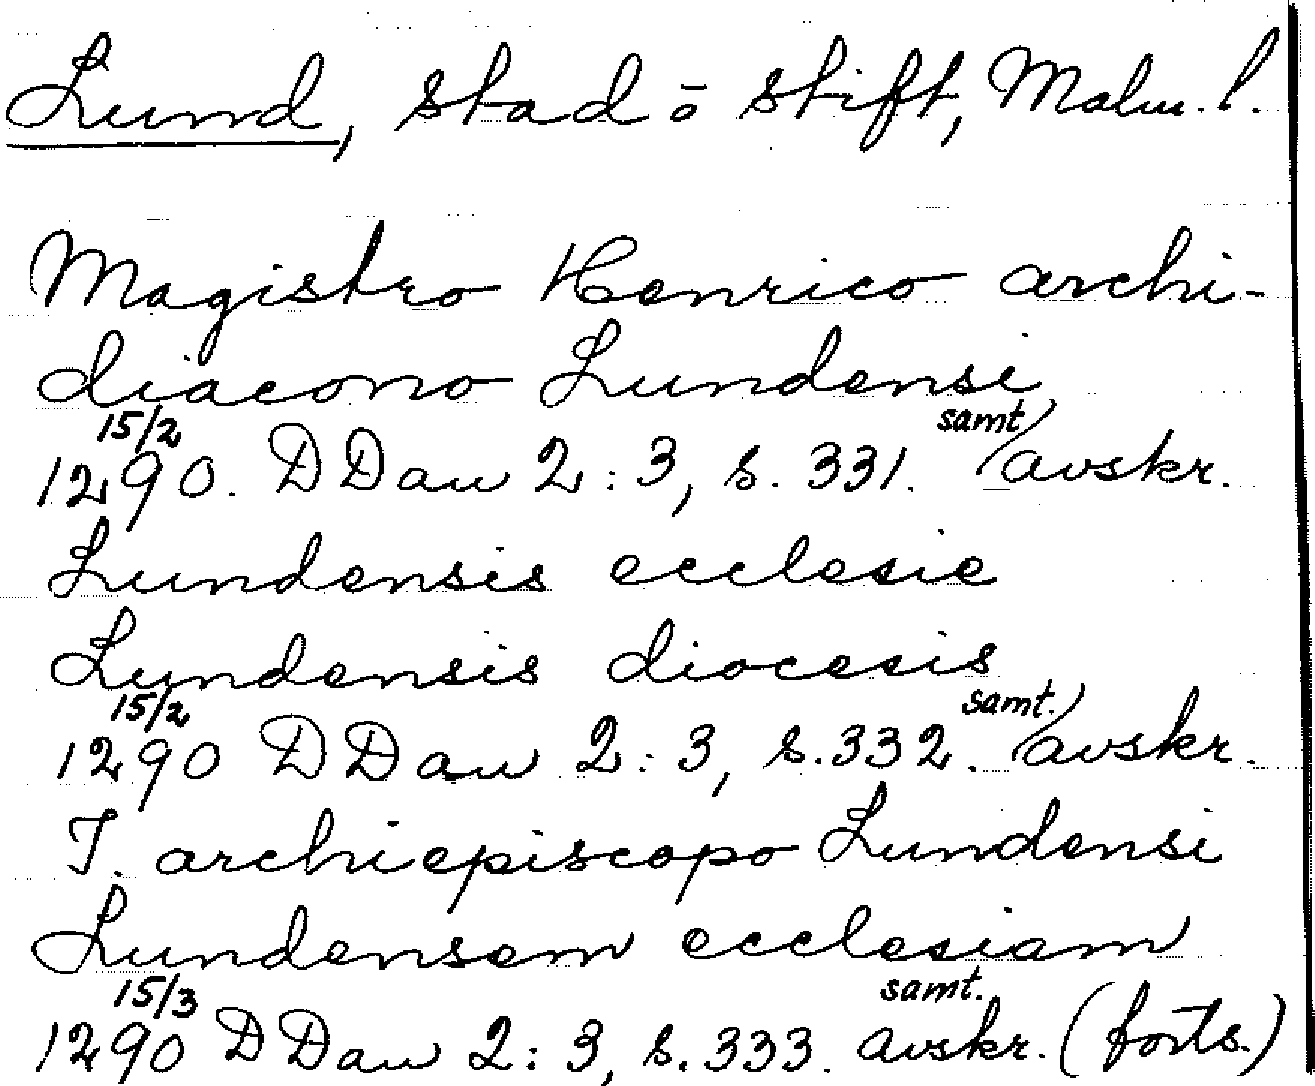 Lund, stad o stift, Malm. l.
Magistro Henrico archi-
diacono Lundensi
15/2 samt
1290. DDan 2:3, s. 331. avskr.
Lundensis ecclesie
Lundensis diocesis
15/2 samt.
1290 DDan 2:3, s. 332. avskr.
J. archiepiscopo Lundensi
Lundensem ecclesiam
15/3 samt.
1290 DDan 2:3, s. 333. avskr. (forts.)